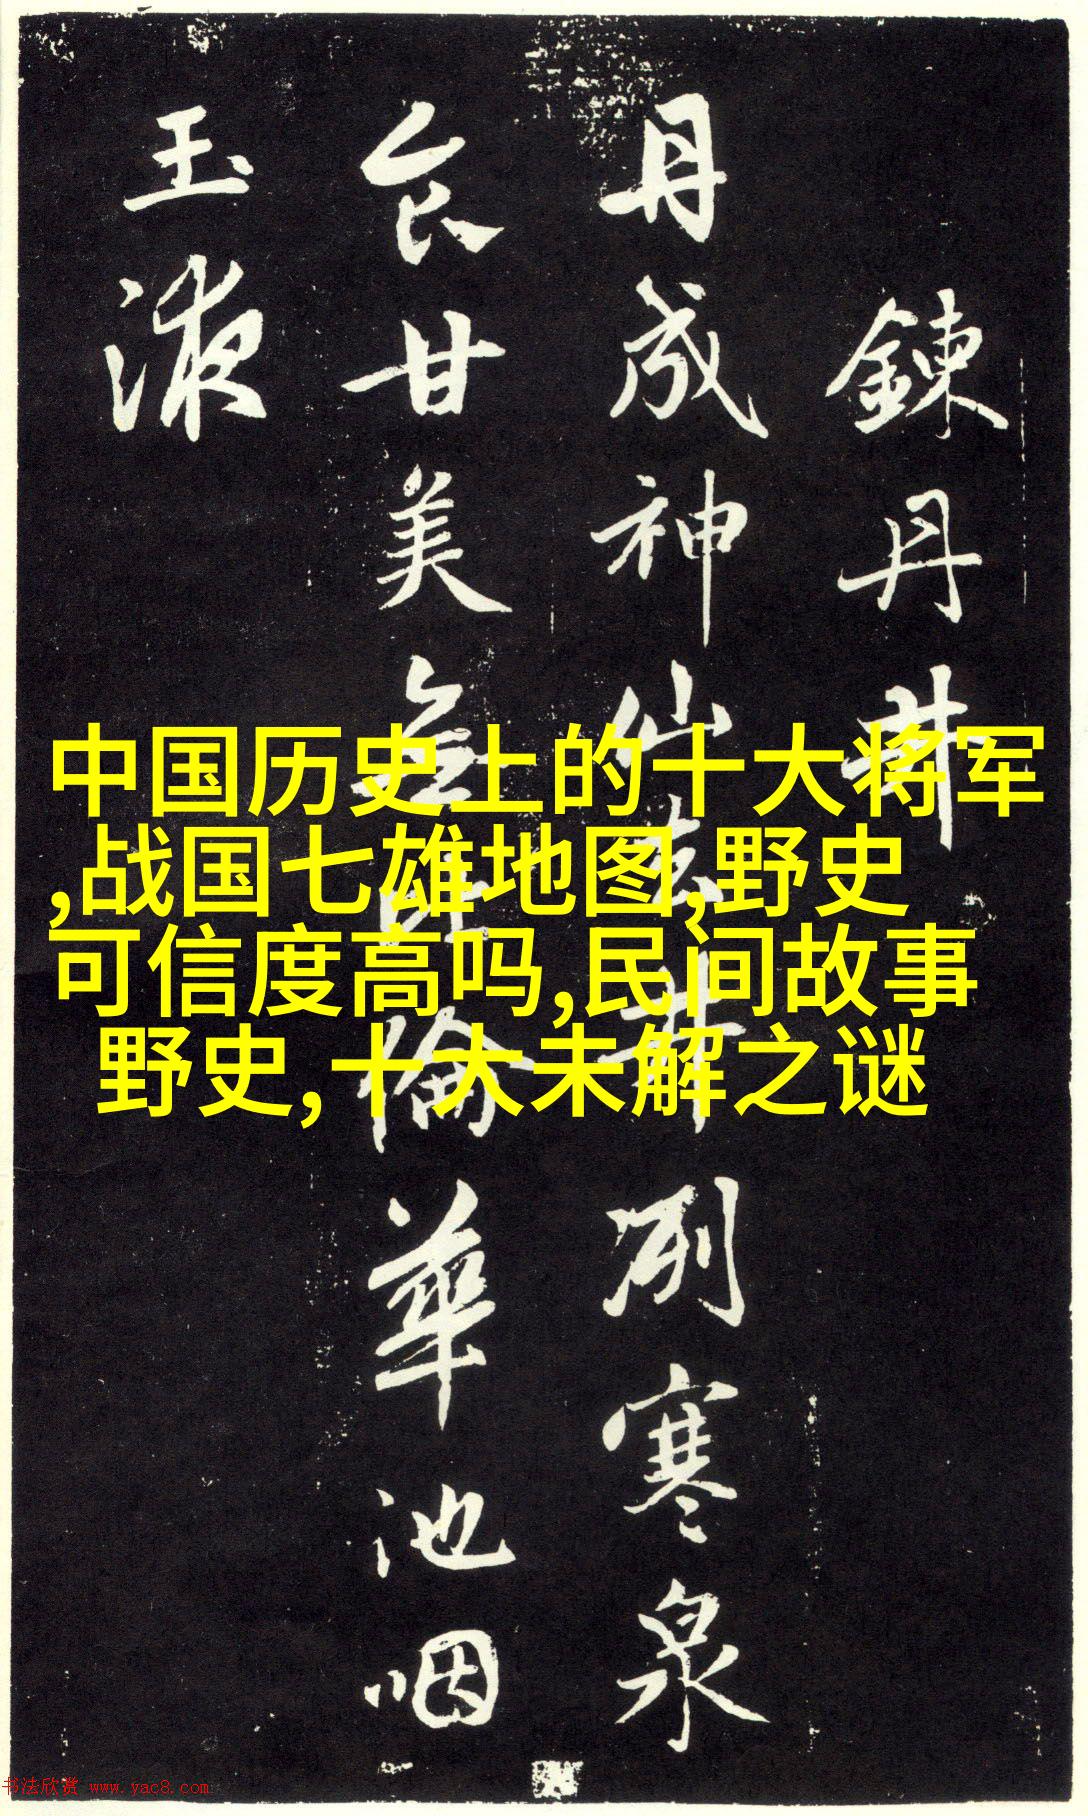 鍊丹井
丹成神仙去井冽寒泉
食甘美無比倫華池咽
玉液
中国历史上的十大将军
,战国七雄地图,野史
可信度高吗,民间故事
野史,十大未解之谜
书法欣赏 www.yac8.com